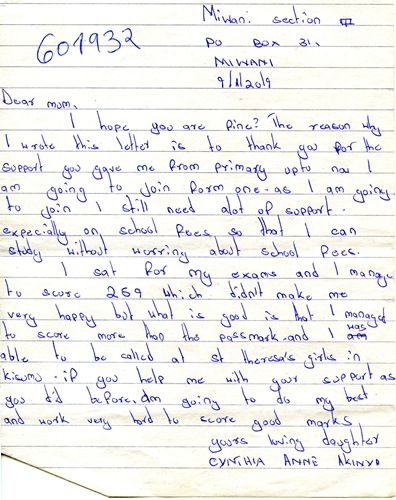 Miwani section III
601932
PO BOX 31,
MIWANI
9/1/2019
Dear mum,
I hope you are fine? The reason why
I wrote this letter is to thank you for the
support you gave me from primary upto now I
am going to join form one. as I am going
to join I still need alot of support.
expecially on school fees so that I can
study without worring about school fees.
I sat for my exams and I manage
to score 269 which didn't make me
very happy but what is good is that I managed
to score more than the passmark. and I was
able to be called at st theresa's girls in
kisumu. if you help me with your support as
you did before. Am going to do my best
and work very hard to score good marks
yours loving daughter
CYNTHIA ANNE AKINYI